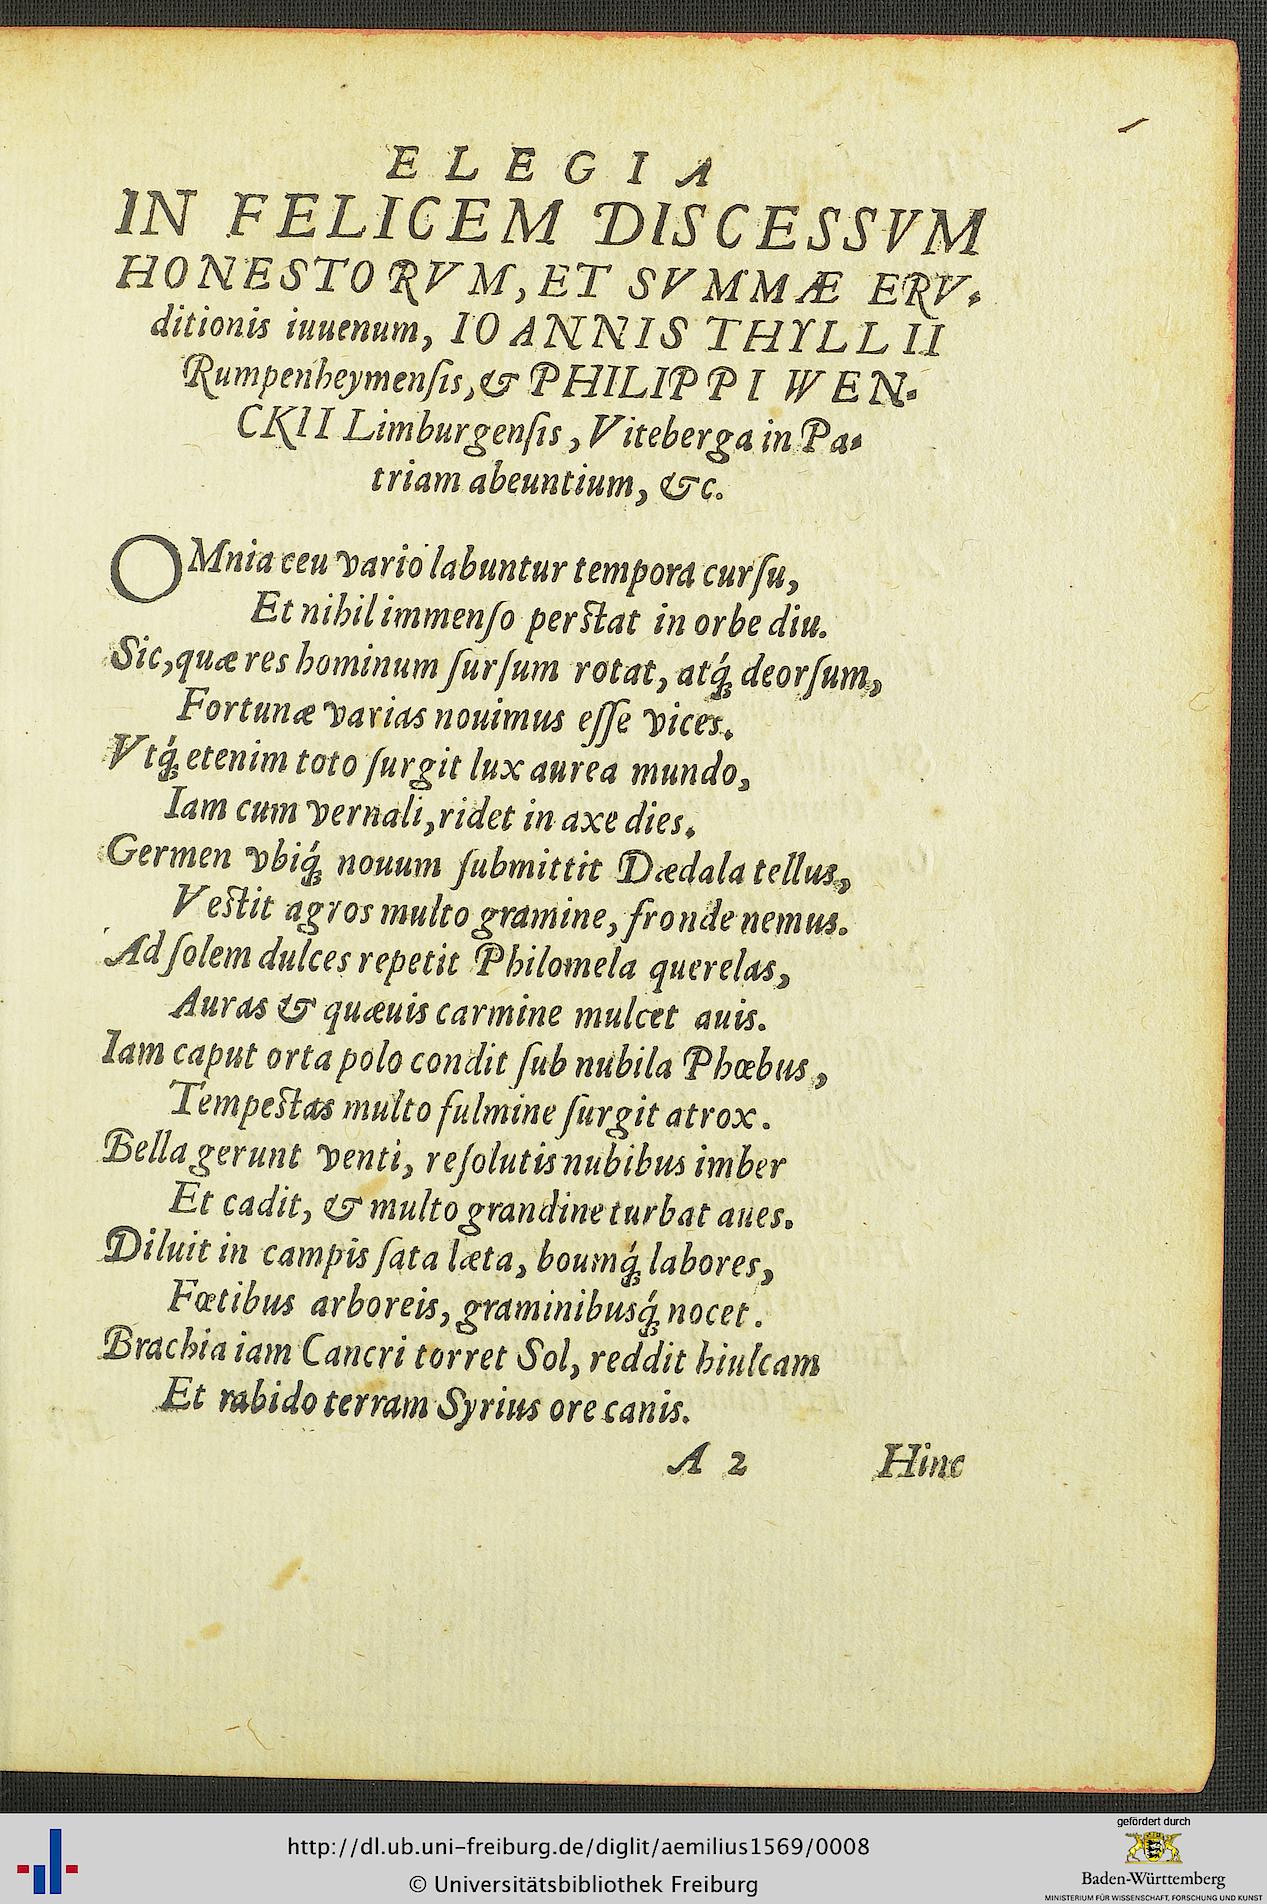 ELEGIA
IN FELICEM DISCESSVM
HONESTORVM, ET SVMMÆ ERV-
ditionis iuuenum, IOANNIS THYLLII
Rumpenheymenſis, & PHILIPPI WEN-
CKII Limburgenſis, Viteberga in Pa-
triam abeuntium, &c.
OMnia ceu vario labuntur tempora curſu,
Et nihil immenſo perſtat in orbe diu.
Sic, quæ res hominum ſurſum rotat, atq́; deorſum,
Fortunæ varias nouimus eſſe vices.
Vtq́; etenim toto ſurgit lux aurea mundo,
Iam cum vernali, ridet in axe dies.
Germen vbiq́; nouum ſubmittit Dædala tellus,
Veſtit agros multo gramine, fronde nemus.
Ad ſolem dulces repetit Philomela querelas,
Auras & quæuis carmine mulcet auis.
Iam caput orta polo condit ſub nubila Phœbus,
Tempeſtas multo fulmine ſurgit atrox.
Bella gerunt venti, reſolutis nubibus imber
Et cadit, & multo grandine turbat aues.
Diluit in campis ſata læta, boumq́; labores,
Fœtibus arboreis, graminibusq́; nocet.
Brachia iam Cancri torret Sol, reddit hiulcam
Et rabido terram Syrius ore canis.
A 2 Hinc
http://dl.ub.uni-freiburg.de/diglit/aemilius1569/0008
© Universitätsbibliothek Freiburg
gefördert durch
Baden-Württemberg
MINISTERIUM FÜR WISSENSCHAFT, FORSCHUNG UND KUNST